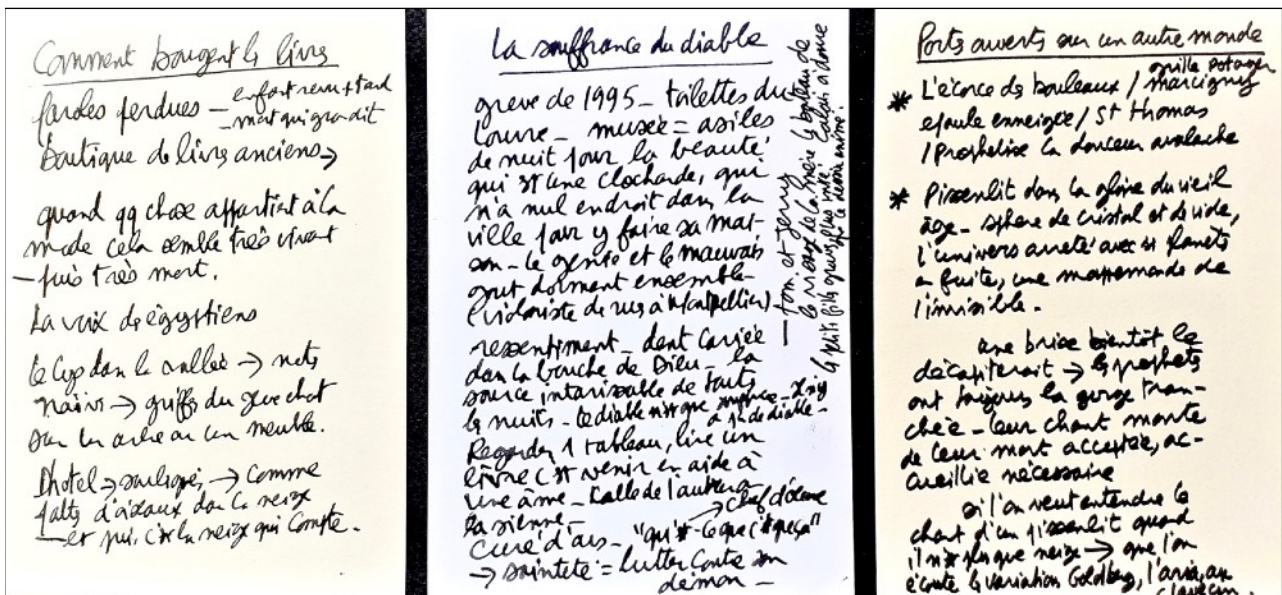 Comment bougent les livres
paroles perdues — enfant revenu + tard
— mort qui grandit
Boutique de livres anciens →
quand qq chose appartient à la
mode cela semble très vivant
— puis très mort.
La voix des égyptiens
Le Lys dans la vallée → nots
naïves → griffes du jeune chat
sur un arbre ou un meuble.
Dhotel → souligner → comme
pattes d'oiseaux dans la neige
— et puis c'est la neige qui compte.
La souffrance du diable
greve de 1995 — toilettes du
Louvre — musée = asiles
de nuit pour la beauté
qui est une clocharde, qui
n'a nul endroit dans la
ville pour y faire sa mai-
son — le genie et le mauvais
gout dorment ensemble
(violoniste de rues à Montpellier) —
ressentiment — dent cariée
dans la bouche de Dieu — la
source intarissable de toutes
les nuits — le diable n'est que
à de diable —
Regarder 1 tableau, lire un
livre c'est venir en aide à
une âme — celle de l'auteur
la sienne —
→ Chef d'œuvre
Curé d'ars — "qui est ce que c'est que ça"
→ sainteté = lutter contre son
démon —
— tom et jerry
le visage de la mère le bourgeois de
Calais a donné
le petits fils gravé plus
Ports ouverts sur un autre monde
* L'écorce des bouleaux / grille potager
marcigny
epaule enneigée / St thomas
/ Prophetise la douceur avalache
* Pissenlit dans la gloire du vieil
âge — sphere de cristal et de vide,
l'univers arreté avec ses planets
en fuite, une mappemonde de
l'invisible.
une brise bientôt le
décapiterait → les prophets
ont toujours la gorge tran-
chée — leur chant monte
de leur mort acceptée, ac-
cueillie nécessaire
si l'on veut entendre le
chant d'un pissenlit quand
il n'est plus que neige → que l'on
écoute les variation Goldberg, l'aria, au
clavecin.